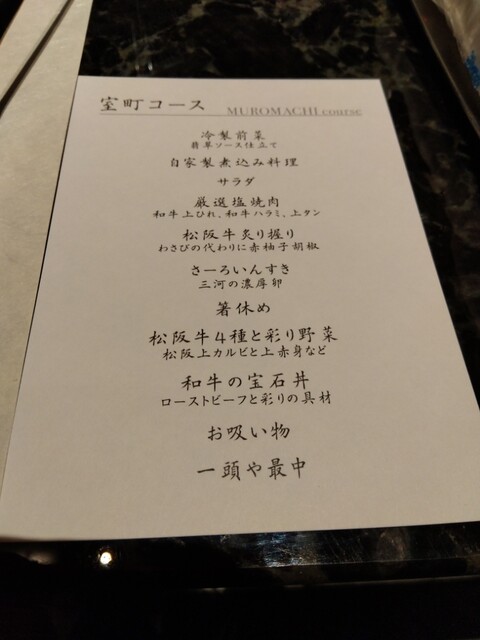 室町コース MUROMACHI course
冷製前菜
翡翠ソース仕立て
自家製煮込み料理
サラダ
厳選塩焼肉
和牛上ひれ、和牛ハラミ、上タン
松阪牛炙り握り
わさびの代わりに赤柚子胡椒
さーろいんすき
三河の濃厚卵
箸休め
松阪牛4種と彩り野菜
松阪上カルビと上赤身など
和牛の宝石丼
ローストビーフと彩りの具材
お吸い物
一頭や最中